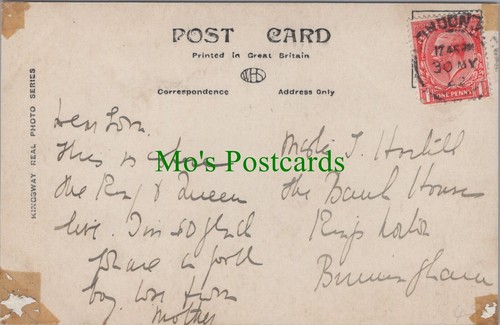 POST CARD
Printed in Great Britain
Correspondence
Address Only
KINGSWAY REAL PHOTO SERIES
LONDON
30 MY
ONE PENNY
Mo's Postcards
Dear Tom.
This is where
the King & Queen
live. I'm so glad
you are a good
boy. love from
Mother
T.
the Bank House
Kings Norton
Birmingham